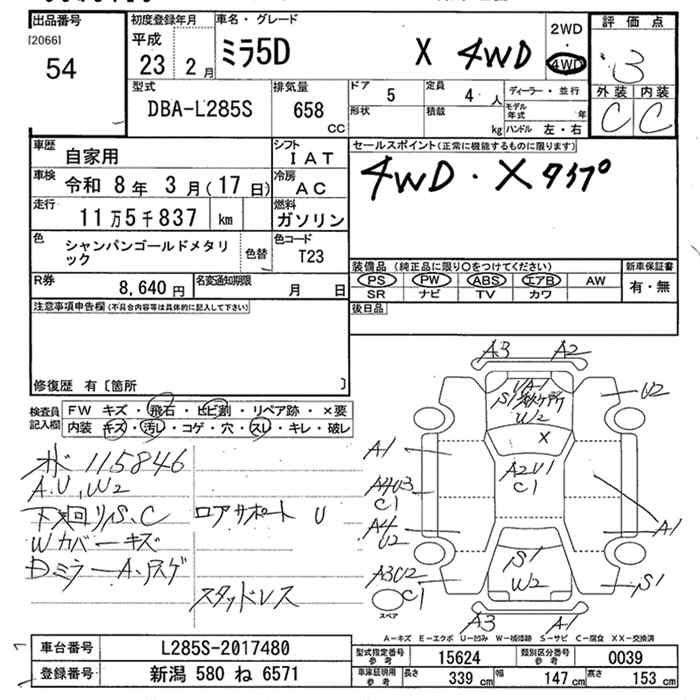 出品番号
[2066]
54
初度登録年月
平成
23年 2月
車名・グレード
ミラ5D X 4WD
2WD
・
4WD
評価点
3
外装 内装
C C
型式
DBA-L285S
排気量
658
CC
ドア 5
定員 4人
形状
積載 kg
ディーラー・並行
モデル年式 年
ハンドル 左・右
車歴 自家用
シフト IAT
車検 令和 8年 3月(17日)
冷房 AC
走行 11万5千837 km
燃料 ガソリン
色 シャンパンゴールドメタリック
色替
色コード T23
R券 8,640円
名変通知期限 月 日
セールスポイント(正常に機能するものに限ります)
4WD・Xタイプ
装備品 (純正品に限り○をつけてください)
PS PW ABS エアB AW
SR ナビ TV カワ
新車保証書
有・無
後日品
注意事項申告欄(不具合内容等は具体的に記入して下さい)
修復歴 有〔箇所 〕
検査員記入欄
FW キズ・飛石・ヒビ割・リペア跡・×要
内装 キズ・汚レ・コゲ・穴・スレ・キレ・破レ
115846
A.U,W2
下廻リS、C
ロアサポート U
Wカバーキズ
DミラーA.
スタッドレス
A3 A2
UA1
S1
W2
U2
X
A1
A2U1
C1
A4U3
C1
A4
U2
A1
A3U2
C1
S1
W2
S1
A3 A1
スペア
A－キズ E－エクボ U－凹み W－補修跡 S－サビ C－腐食 XX－交換済
車台番号 L285S-2017480
登録番号 新潟 580 ね 6571
型式指定番号 参考 15624
類別区分番号 参考 0039
車庫証明用 参考 長さ 339cm 幅 147cm 高さ 153cm